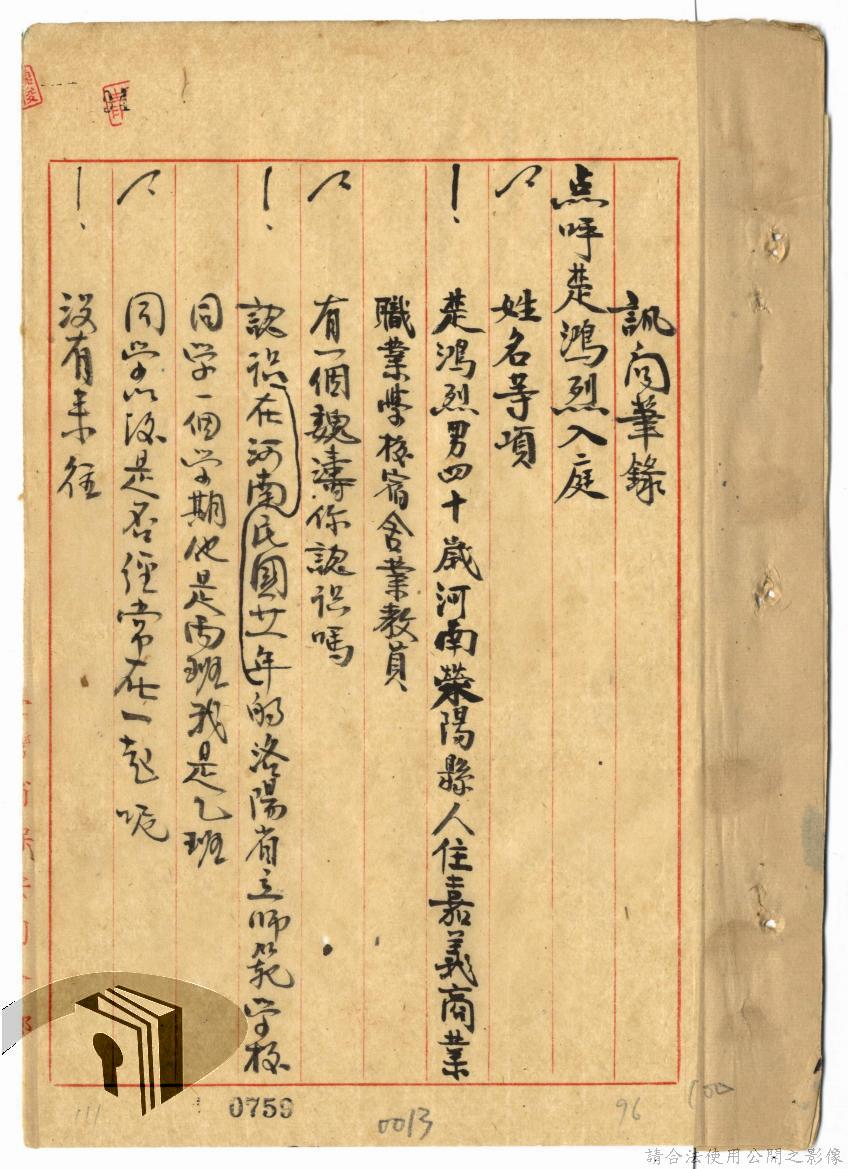 訊问筆錄
点呼楚鴻烈入庭
? 姓名等項
! 楚鴻烈男四十歲河南滎陽縣人住嘉義商業
職業學校宿舍業教員
? 有一個魏濤你認识嗎
! 認识在河南民國廿一年的洛陽省立师範学校
同学一個学期他是丙班我是乙班
? 同学以後是否經常在一起呢
! 没有来往
0759
0013
96
100
111
請合法使用公開之影像